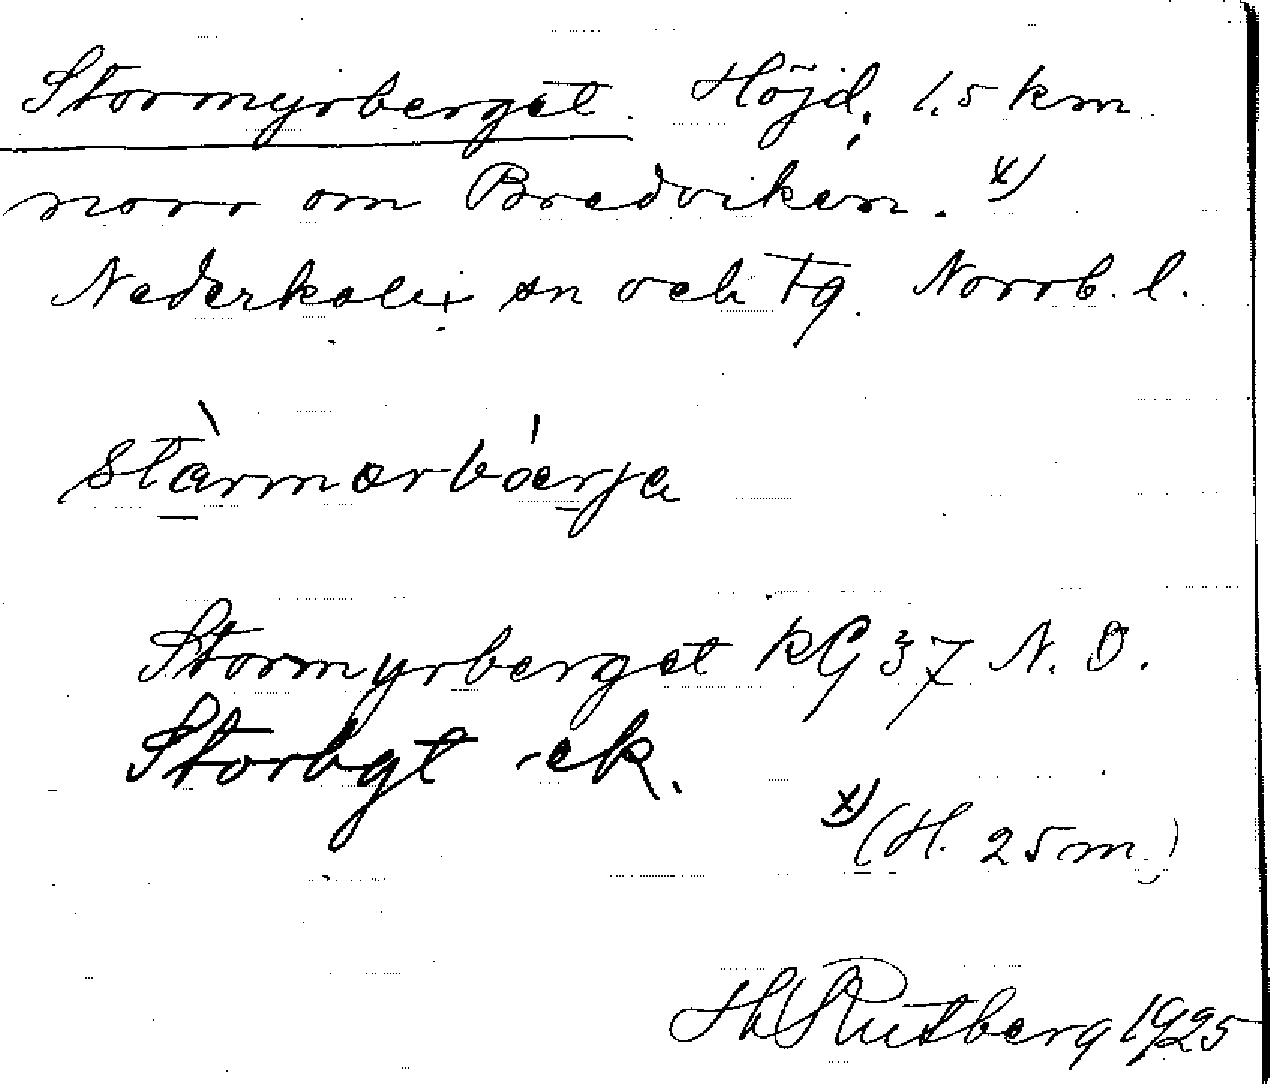 Stormyrberget. Höjd, 1.5 km
norr om Bredviken. x)
Nederkalix sn och tg. Norrb. l.
stàrmərbáerja
Stormyrberget KG 37 N.O.
Storbgt ek.
x) (H. 25 m.)
H Rutberg 1925